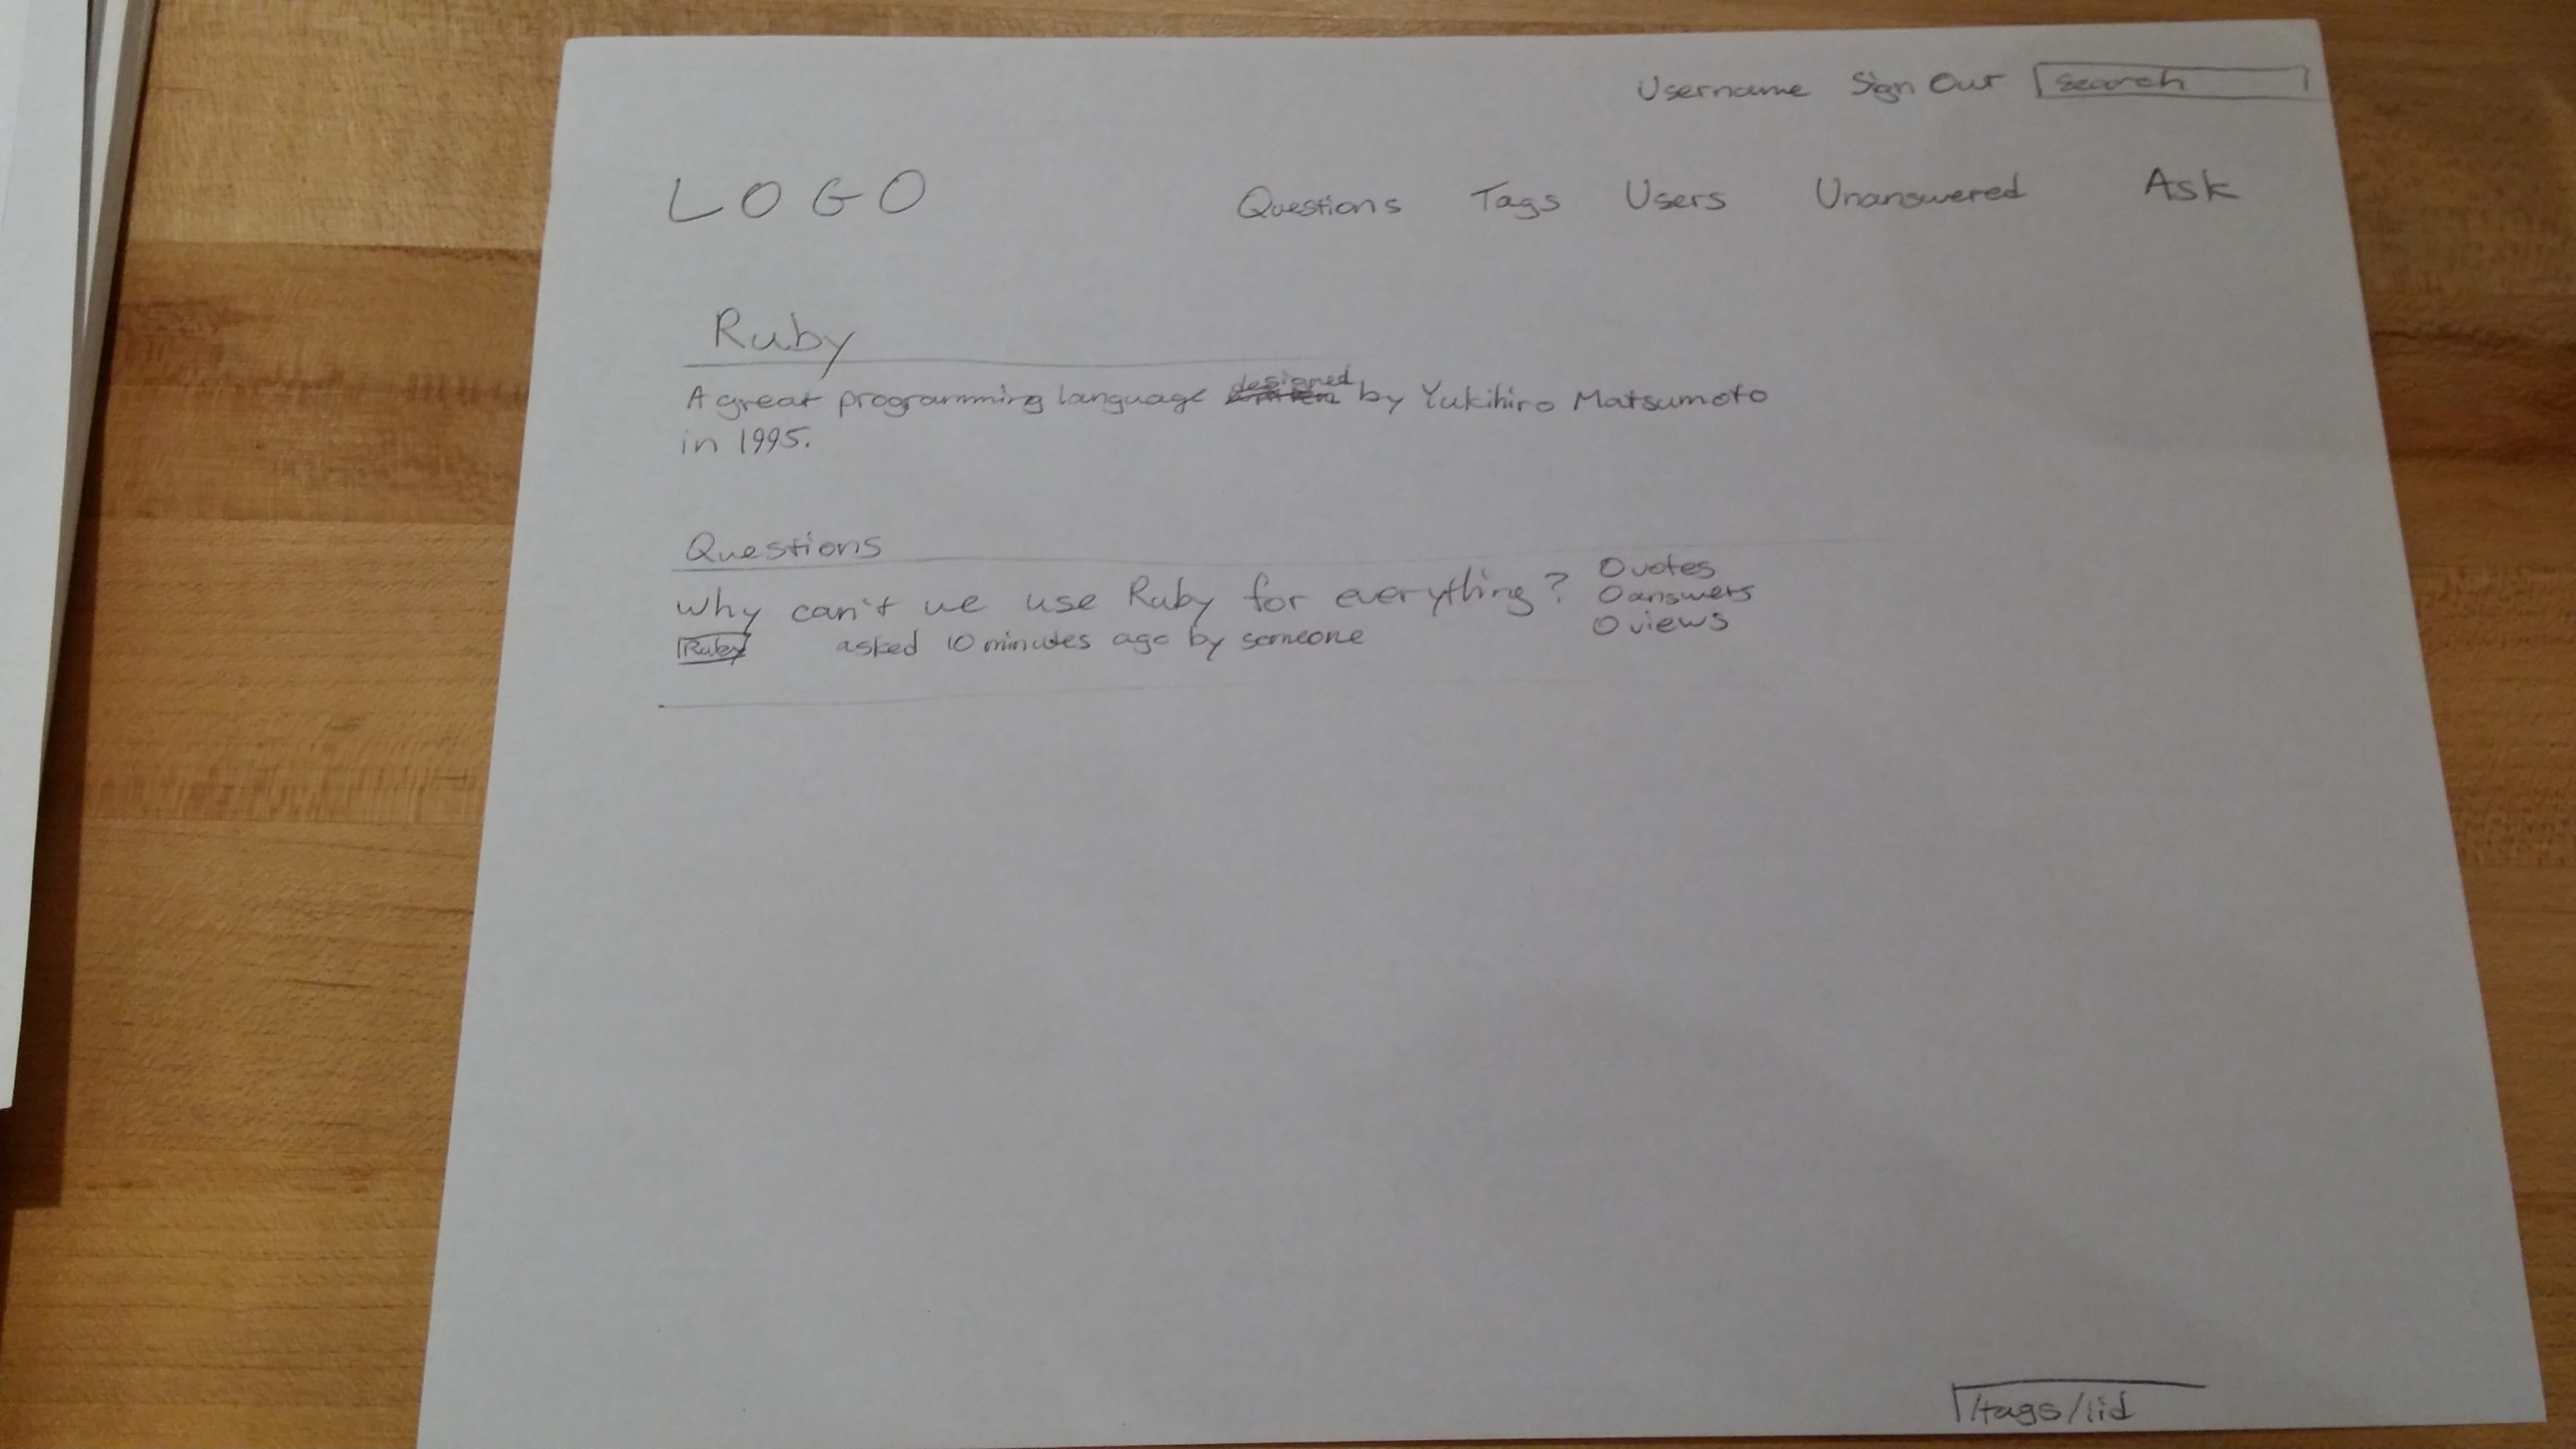 Username Sign Out Search
LOGO Questions Tags Users Unanswered Ask
Ruby
A great programming language designed by Yukihiro Matsumoto
in 1995.
Questions
Why can't we use Ruby for everything?
0 votes
0 answers
0 views
Ruby asked 10 minutes ago by someone
/tags/:id